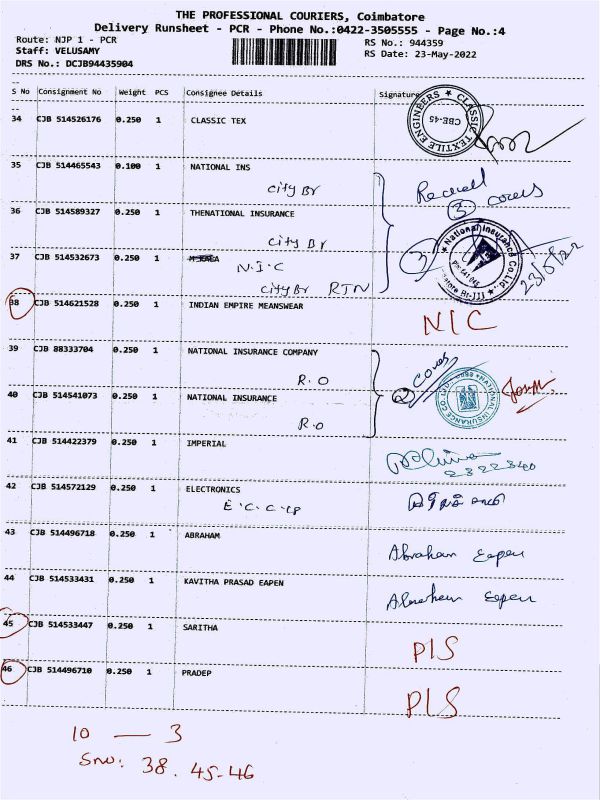 THE PROFESSIONAL COURIERS, Coimbatore
Delivery Runsheet - PCR - Phone No.:0422-3505555 - Page No.:4
Route: NJP 1 - PCR
RS No.: 944359
Staff: VELUSAMY
RS Date: 23-May-2022
DRS No.: DCJB94435904
S No Consignment No Weight PCS Consignee Details Signature
34 CJB 514526176 0.250 1 CLASSIC TEX
CLASSIC TEXTILE ENGINEERS
CBE-45
35 CJB 514465543 0.100 1 NATIONAL INS
City Br
Received
3 covers
36 CJB 514589327 0.250 1 THENATIONAL INSURANCE
City Br
National Insurance Co.Ltd
3
23/5/22
37 CJB 514532673 0.250 1
N.I.C
City Br RTN
38 CJB 514621528 0.250 1 INDIAN EMPIRE MEANSWEAR
NIC
39 CJB 88333704 0.250 1 NATIONAL INSURANCE COMPANY
R.O
2 Covers
NATIONAL INSURANCE CO
40 CJB 514541073 0.250 1 NATIONAL INSURANCE
R.O
41 CJB 514422379 0.250 1 IMPERIAL
2322340
42 CJB 514572129 0.250 1 ELECTRONICS
43 CJB 514496718 0.250 1 ABRAHAM
Abraham Eapen
44 CJB 514533431 0.250 1 KAVITHA PRASAD EAPEN
Abraham Eapen
45 CJB 514533447 0.250 1 SARITHA
P/S
46 CJB 514496710 0.250 1 PRADEP
P/S
10 — 3
Sno: 38. 45-46